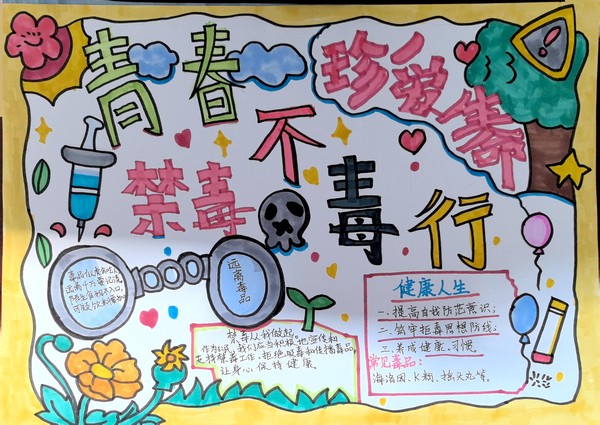 青春
不
毒
行
珍爱生命
禁毒
远离毒品
禁毒从我做起。
作为公民,我们应当积极地宣传和
支持禁毒工作,拒绝吸毒和传播毒品,
让身心保持健康
健康人生
一、提高自我防范意识;
二、筑牢拒毒思想防线;
三、养成健康习惯。
常见毒品:
海洛因、K粉、摇头丸等。